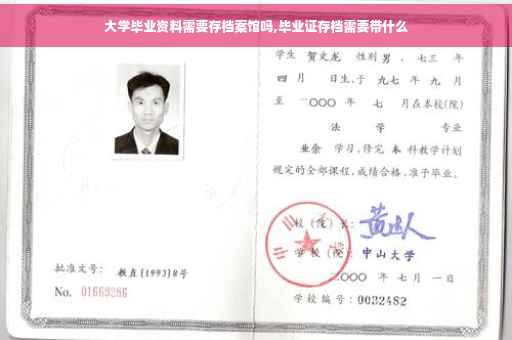 大学毕业资料需要存档案馆吗,毕业证存档需要带什么
学生 贺文龙 性别 男 、七三 年
四 月 日生,于 九七 年 九 月
至 二〇〇〇 年 七 月在本校(院)
法 学 专业
业余 学习,修完 本 科教学计划
规定的全部课程,成绩合格,准予毕业。
校 (院) 长:
学 校 (院): 中山大学
二〇〇〇 年 七 月 一 日
学校编号: 0032482
批准文号: 教直[1993]8号
No. 01669286